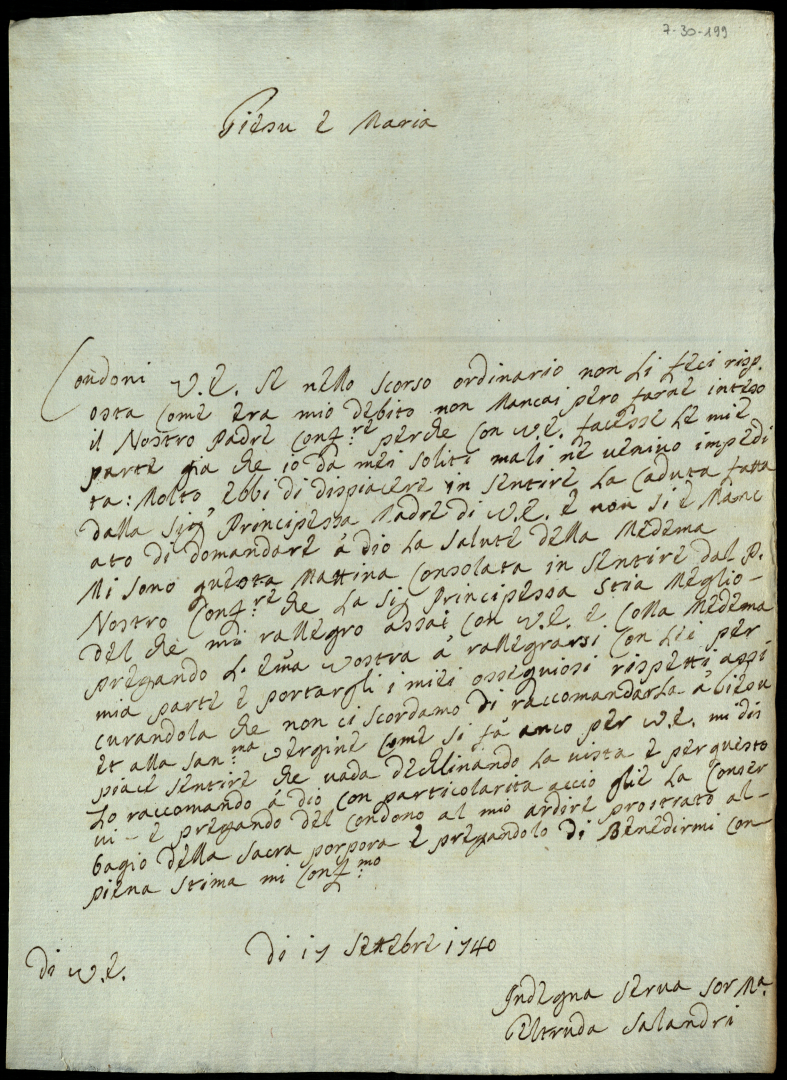 7-30-199
Giesu e Maria
Condoni V.E. se nello scorso ordinario non li feci risp.
osta come era mio debito non Mancai pero farne inteso
il Nostro Padre Conf.re perche con V.E. facesse le mie
parte gia che io da miei soliti mali ne venivo impedi
ta: Molto ebbi di dispiacere in sentire la Caduta fatta
dalla Sig.ra Principessa Madre di V.E. e non si è Manc
ato di domandare á Dio la salute della Medema
Mi sono questa Mattina Consolata in sentire dal P.
Nostro Conf.re che la Sig. Principessa stia Meglio –
del che mi rallegro assai con V.E. e colla Medema
pregando l'Em̃a Vostra á rallegrarsi con lei per
mia parte e portargli i miei ossequiosi rispetti assi
curandola che non ci scordamo di raccomandarla á Giesu
et alla San.ma Vergine come si fá anco per V.E. mi dis
piace sentire che vada declinando la vista e per questo
lo raccomando á Dio con particolarita accio glie la Conser
vi – e pregando del condono al mio ardire prostrato al –
bagio della Sacra porpora e pregandolo di Benedirmi con
piena stima mi Conf.mo
di V.E.
Di 17 Settebre 1740
Indegna Serva Sor M.a
Geltruda Salandri